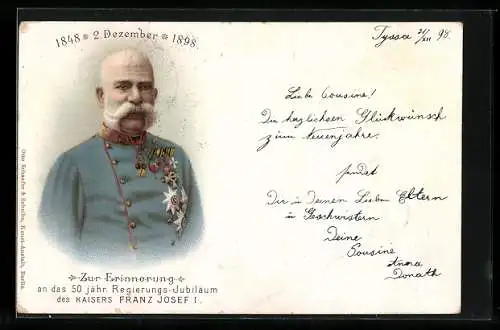 1848 * 2. Dezember * 1898.
Tyssa 29/XII 98.
Liebe Cousine!
Die herzlichsten Glückwunsch
zum Neuenjahre.
sendet
Dir u Deinen Lieben Eltern
u Geschwistern
Deine
Cousine
Anna
Donath
Otto Schaefer & Scheibe, Kunst-Anstalt, Berlin.
Zur Erinnerung
an das 50 jähr. Regierungs-Jubiläum
des KAISERS FRANZ JOSEF I.